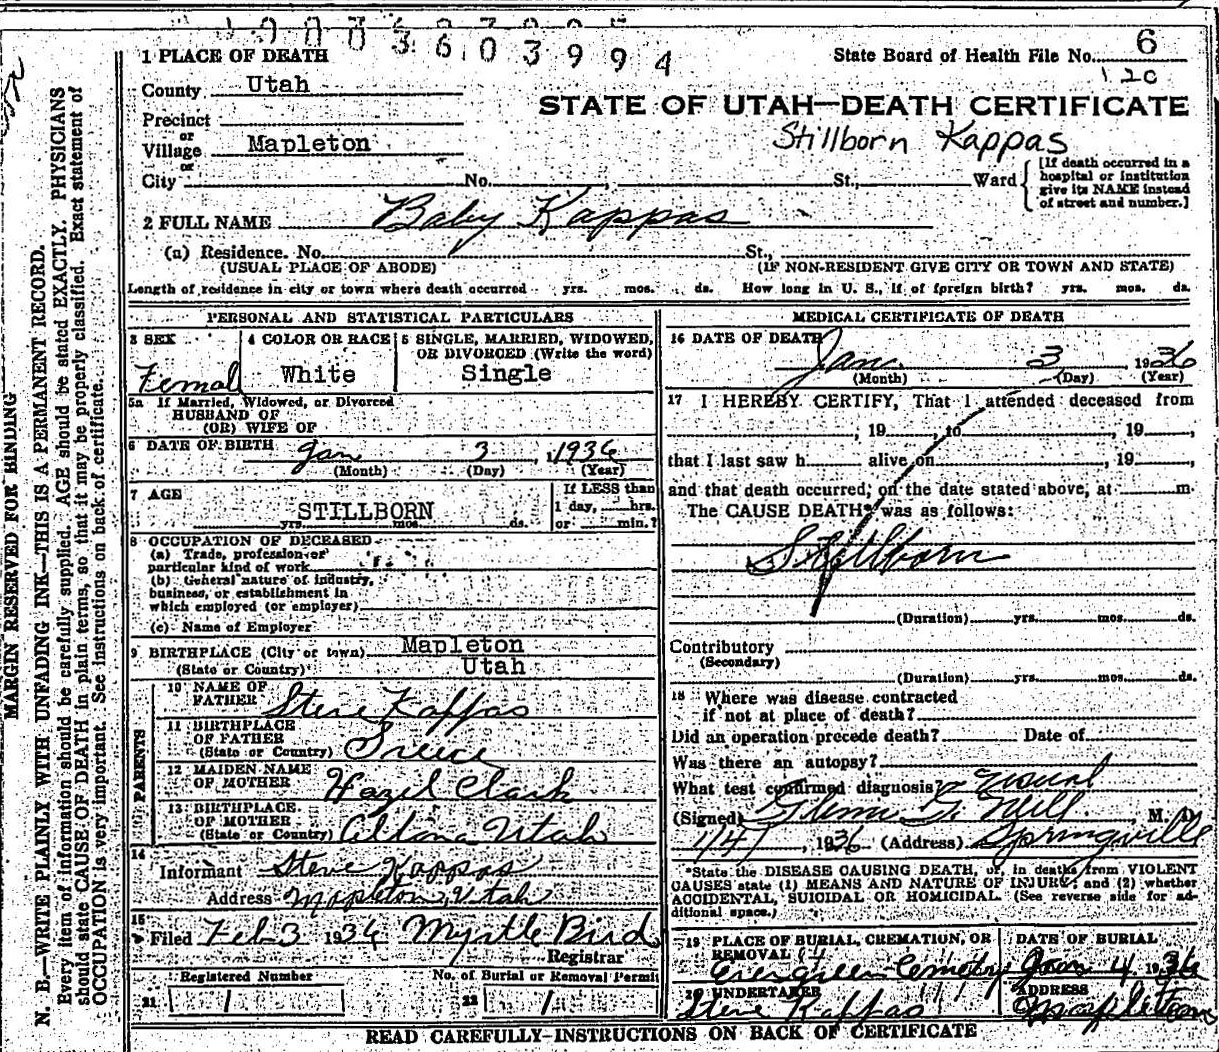 3 6 0 3 9 9 4
1 PLACE OF DEATH
State Board of Health File No. 6
120
County Utah
STATE OF UTAH—DEATH CERTIFICATE
Precinct
or
Village Mapleton
Stillborn Kappas
or
City No. , St., Ward
[If death occurred in a
hospital or institution
give its NAME instead
of street and number.]
2 FULL NAME Baby Kappas
(a) Residence. No. St.,
(USUAL PLACE OF ABODE) (IF NON-RESIDENT GIVE CITY OR TOWN AND STATE)
Length of residence in city or town where death occurred yrs. mos. ds. How long in U. S., if of foreign birth? yrs. mos. ds.
PERSONAL AND STATISTICAL PARTICULARS
3 SEX
Female
4 COLOR OR RACE
White
5 SINGLE, MARRIED, WIDOWED,
OR DIVORCED (Write the word)
Single
5a If Married, Widowed, or Divorced
HUSBAND OF
(OR) WIFE OF
6 DATE OF BIRTH Jan 3, 1936
(Month) (Day) (Year)
7 AGE
STILLBORN
yrs. mos. ds.
If LESS than
1 day, hrs.
or min.?
8 OCCUPATION OF DECEASED
(a) Trade, profession or
particular kind of work
(b) General nature of industry,
business, or establishment in
which employed (or employer)
(c) Name of Employer
9 BIRTHPLACE (City or town) Mapleton
(State or Country) Utah
PARENTS
10 NAME OF
FATHER Steve Kappas
11 BIRTHPLACE
OF FATHER
(State or Country) Greece
12 MAIDEN NAME
OF MOTHER Hazel Clark
13 BIRTHPLACE
OF MOTHER
(State or Country) Altona Utah
14
Informant Steve Kappas
Address Mapleton, Utah
15
Filed Feb 3 1936 Myrtle Bird
Registrar
Registered Number
21 1
No. of Burial or Removal Permit
22 1
MEDICAL CERTIFICATE OF DEATH
16 DATE OF DEATH
Jan. 3 1936
(Month) (Day) (Year)
17 I HEREBY CERTIFY, That I attended deceased from
, 19 , to , 19 ,
that I last saw h alive on , 19 ,
and that death occurred, on the date stated above, at m.
The CAUSE DEATH* was as follows:
Stillborn
(Duration) yrs. mos. ds.
Contributory
(Secondary)
(Duration) yrs. mos. ds.
18 Where was disease contracted
if not at place of death?
Did an operation precede death? Date of
Was there an autopsy?
What test confirmed diagnosis?
(Signed) , M. D.
1/4/, 1936 (Address) Springville
*State the DISEASE CAUSING DEATH, or, in deaths from VIOLENT
CAUSES state (1) MEANS AND NATURE OF INJURY; and (2) whether
ACCIDENTAL, SUICIDAL OR HOMICIDAL. (See reverse side for ad-
ditional space.)
19 PLACE OF BURIAL, CREMATION, OR
REMOVAL
Evergreen Cemetery
DATE OF BURIAL
Jan 4 1936
20 UNDERTAKER
Steve Kappas
ADDRESS
Mapleton
READ CAREFULLY—INSTRUCTIONS ON BACK OF CERTIFICATE
MARGIN RESERVED FOR BINDING
N. B.—WRITE PLAINLY WITH UNFADING INK—THIS IS A PERMANENT RECORD.
Every item of information should be carefully supplied. AGE should be stated EXACTLY. PHYSICIANS
should state CAUSE OF DEATH in plain terms, so that it may be properly classified. Exact statement of
OCCUPATION is very important. See instructions on back of certificate.